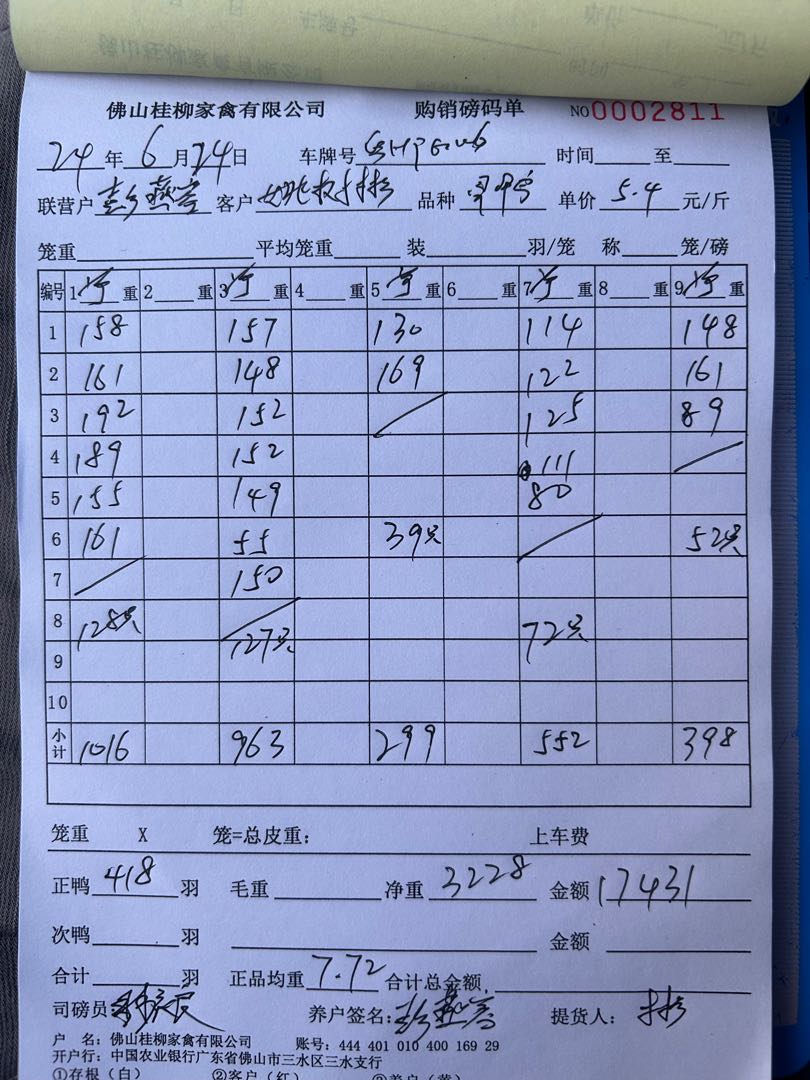 佛山桂柳家禽有限公司 购销磅码单 NO0002811
24年6月24日 车牌号 时间 至
联营户彭燕 客户 品种 单价5.4元/斤
笼重 平均笼重 装 羽/笼 称 笼/磅
编号 1 净 重 2 重 3 净 重 4 重 5 净 重 6 重 7 净 重 8 重 9 净 重
1 158 157 130 114 148
2 161 148 169 122 161
3 192 152 125 89
4 189 152 111
5 155 149 80
6 161 55 39只 52只
7 150
8 128只 127只 72只
9
10
小计 1016 963 299 552 398
笼重 X 笼=总皮重: 上车费
正鸭418羽 毛重 净重3228 金额17431
次鸭 羽 金额
合计 羽 正品均重7.72 合计总金额
司磅员: 养户签名:彭燕 提货人:
户 名: 佛山桂柳家禽有限公司 账号: 444 401 010 400 169 29
开户行: 中国农业银行广东省佛山市三水区三水支行
①存根(白) ②客户(红) ③养户(黄)